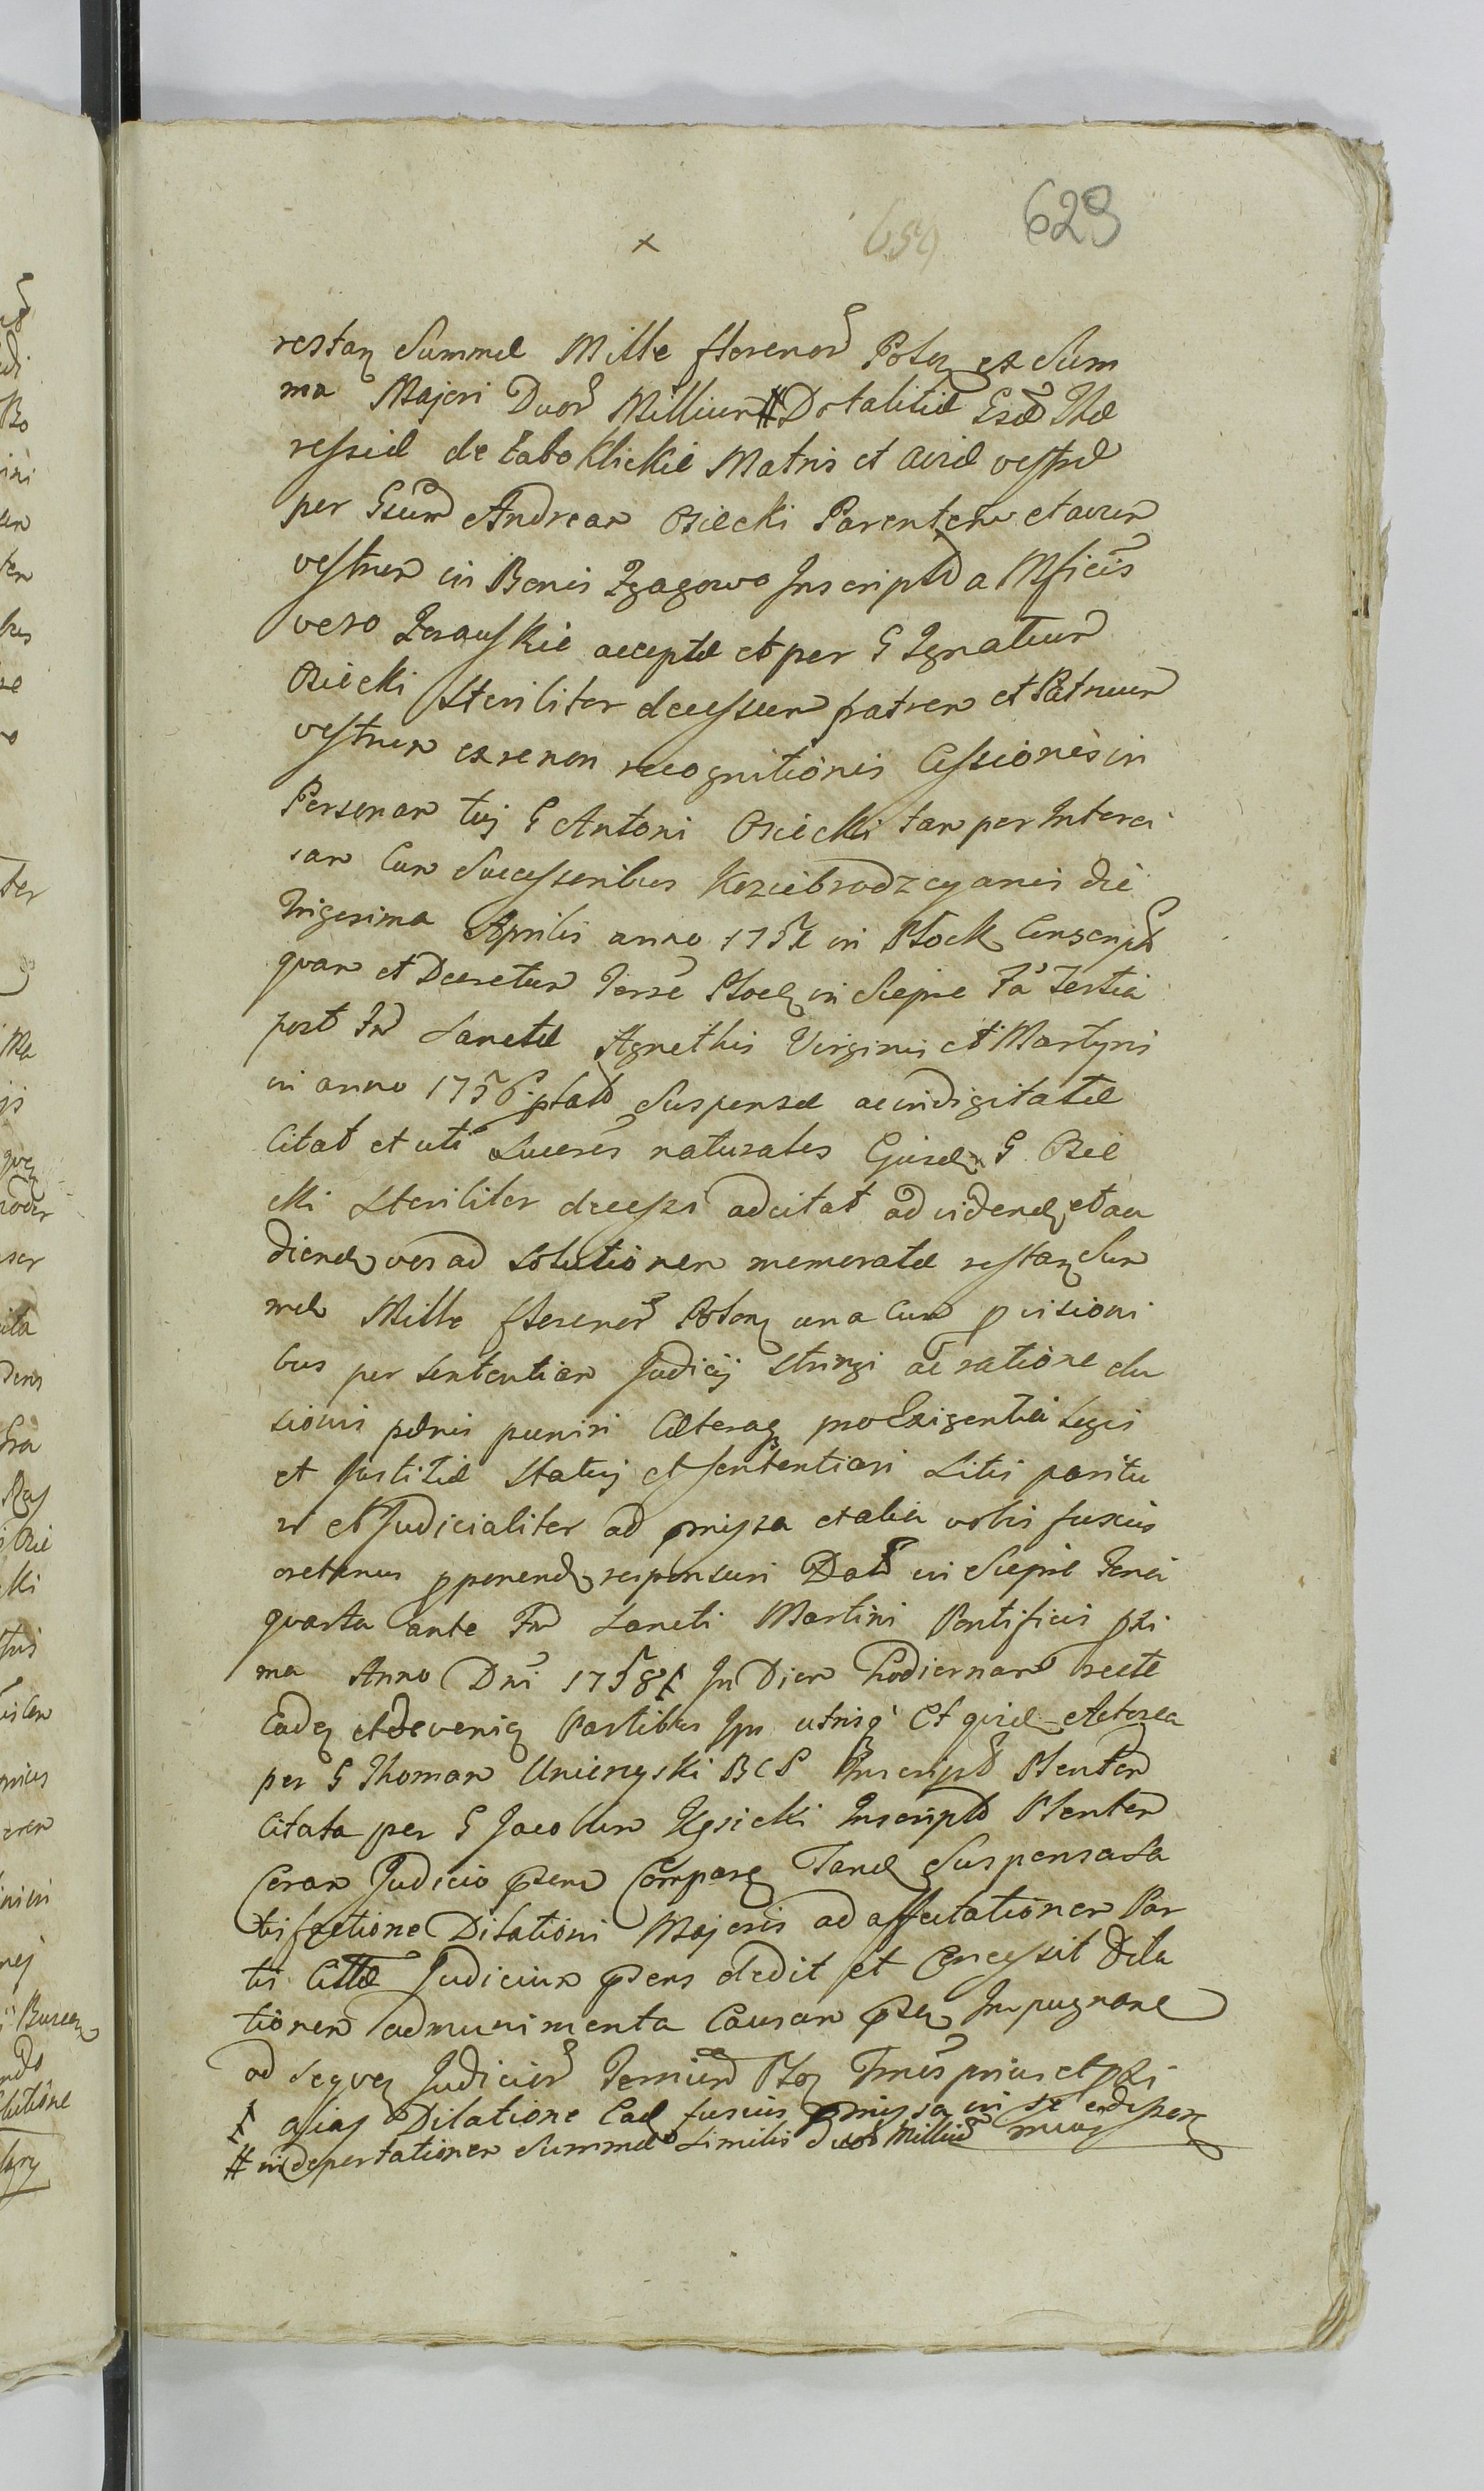 x 659 629
restan Summæ Mille florenor Polon ex Sum
ma Majori Duor Millium # Dotalitiæ Gsæ The
ressiæ de Łabo Klickie Matris et aviæ vestræ
per Gsum Andream Osiecki Parentem et avum
vestrum in Bonis Zgagowo Inscriptæ a Mficis
vero Zerauskie acceptæ et per G Ignatium
Osiecki Steriliter decessum fratrem et Patruum
vestrum ex re non recognitionis Cessionis in
Personam tuj G Antoni Osiecki tam per Interci
sam Cum Successoribus Koziebrodzcyanis die
Trigesima Aprilis anno 1751 in Plock Conscript
quam et Decretum Terre Plocen in Siepre Fa Tertia
post Fm Sanctæ Agnethis Virginis et Martyris
in anno 1756 plat Suspensæ ac indigitatæ
Citat et uti Succres naturales Ejusdem G Osie
cki Steriliter decessi adcitat ad videnda et au
dienda vos ad Solutionem memoratæ restan Sum
mæ Mille florenor Polon una Cum pvisioni
bus per Sententiam Judicij Stringi ac ratione elu
sionis pænis puniri Cæteraq pro Exigentia Legis
et Justitiæ Statuj et sententiari Litis paritu
ri et Judicialiter ad pmissa et alia vobis fusius
oretenus pponenda responsuri Dat in Siepre Feria
quarta ante Fm Sancti Martini Pontificis pxi
ma Anno Dni 1758 ‡ In Diem hodiernam recte
Caden et devenien Partibus Ipis utrisq Et quidem Actorea
per G Thomam Unierzyski B C P Inscript Plenten
Citata per G Jacobum Kęsicki Inscript Plenten
Coram Judicio psenti Comparen Tandem Suspensa Sa
tisfactione Dilationi Majoris ad affectationem Par
tis Cittæ Judicium psens dedit et Concessit Dila
tionem ad munimenta Causam psen Impugnare
ad Sequen Judicior Terrium Plocen Tmis prius et pxi
‡ alias Dilatione Cad fusius pmissa in se
# in deportationem Summæ Similis Duor Millium